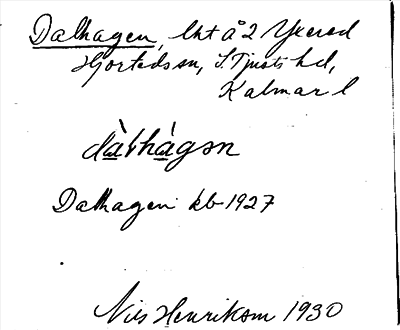 Dalhagen, lht å 2 Yxered
Hjorteds sn, S Tjusts hd,
Kalmar l
dàlhàgən
Dalhagen kb 1927
Nils Henrikson 1930